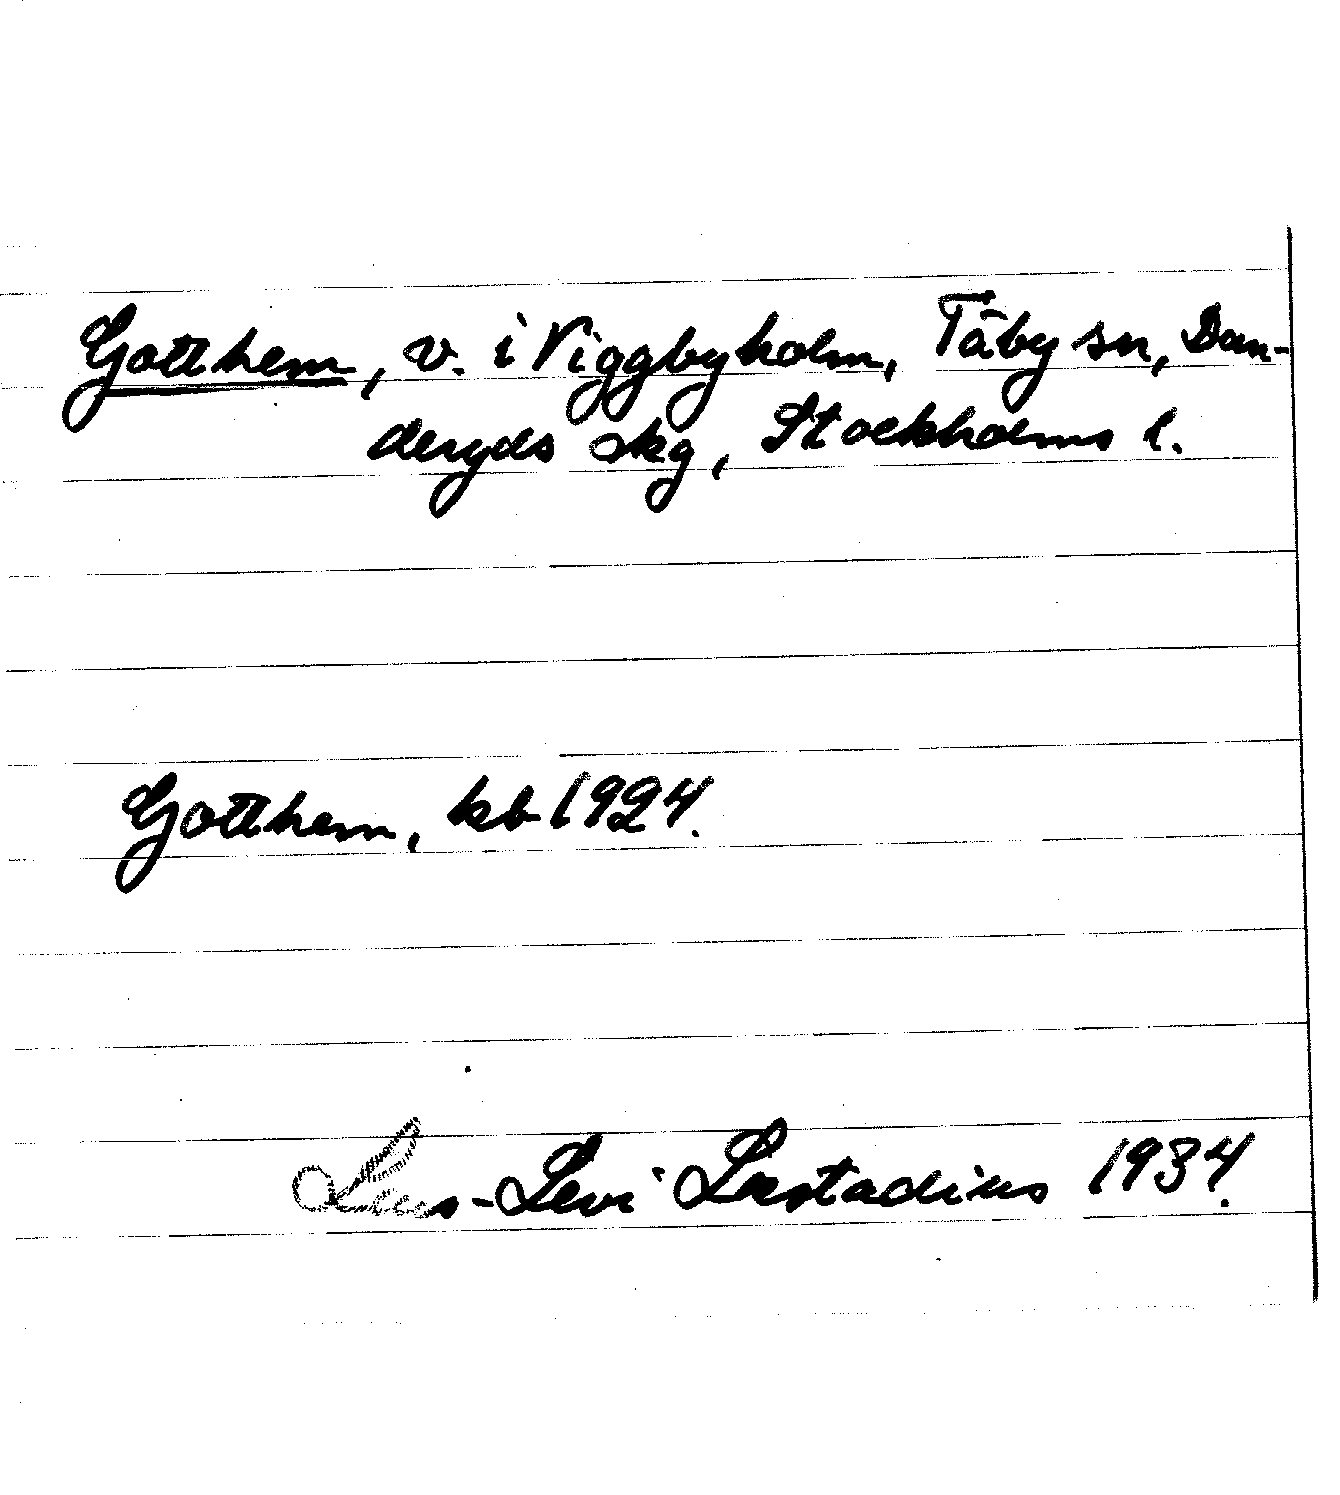 Gotthem, v. i Viggbyholm, Täby sn, Dan-
deryds skg, Stockholms l.
Gotthem, kb 1924.
Lars-Levi Læstadius 1934.